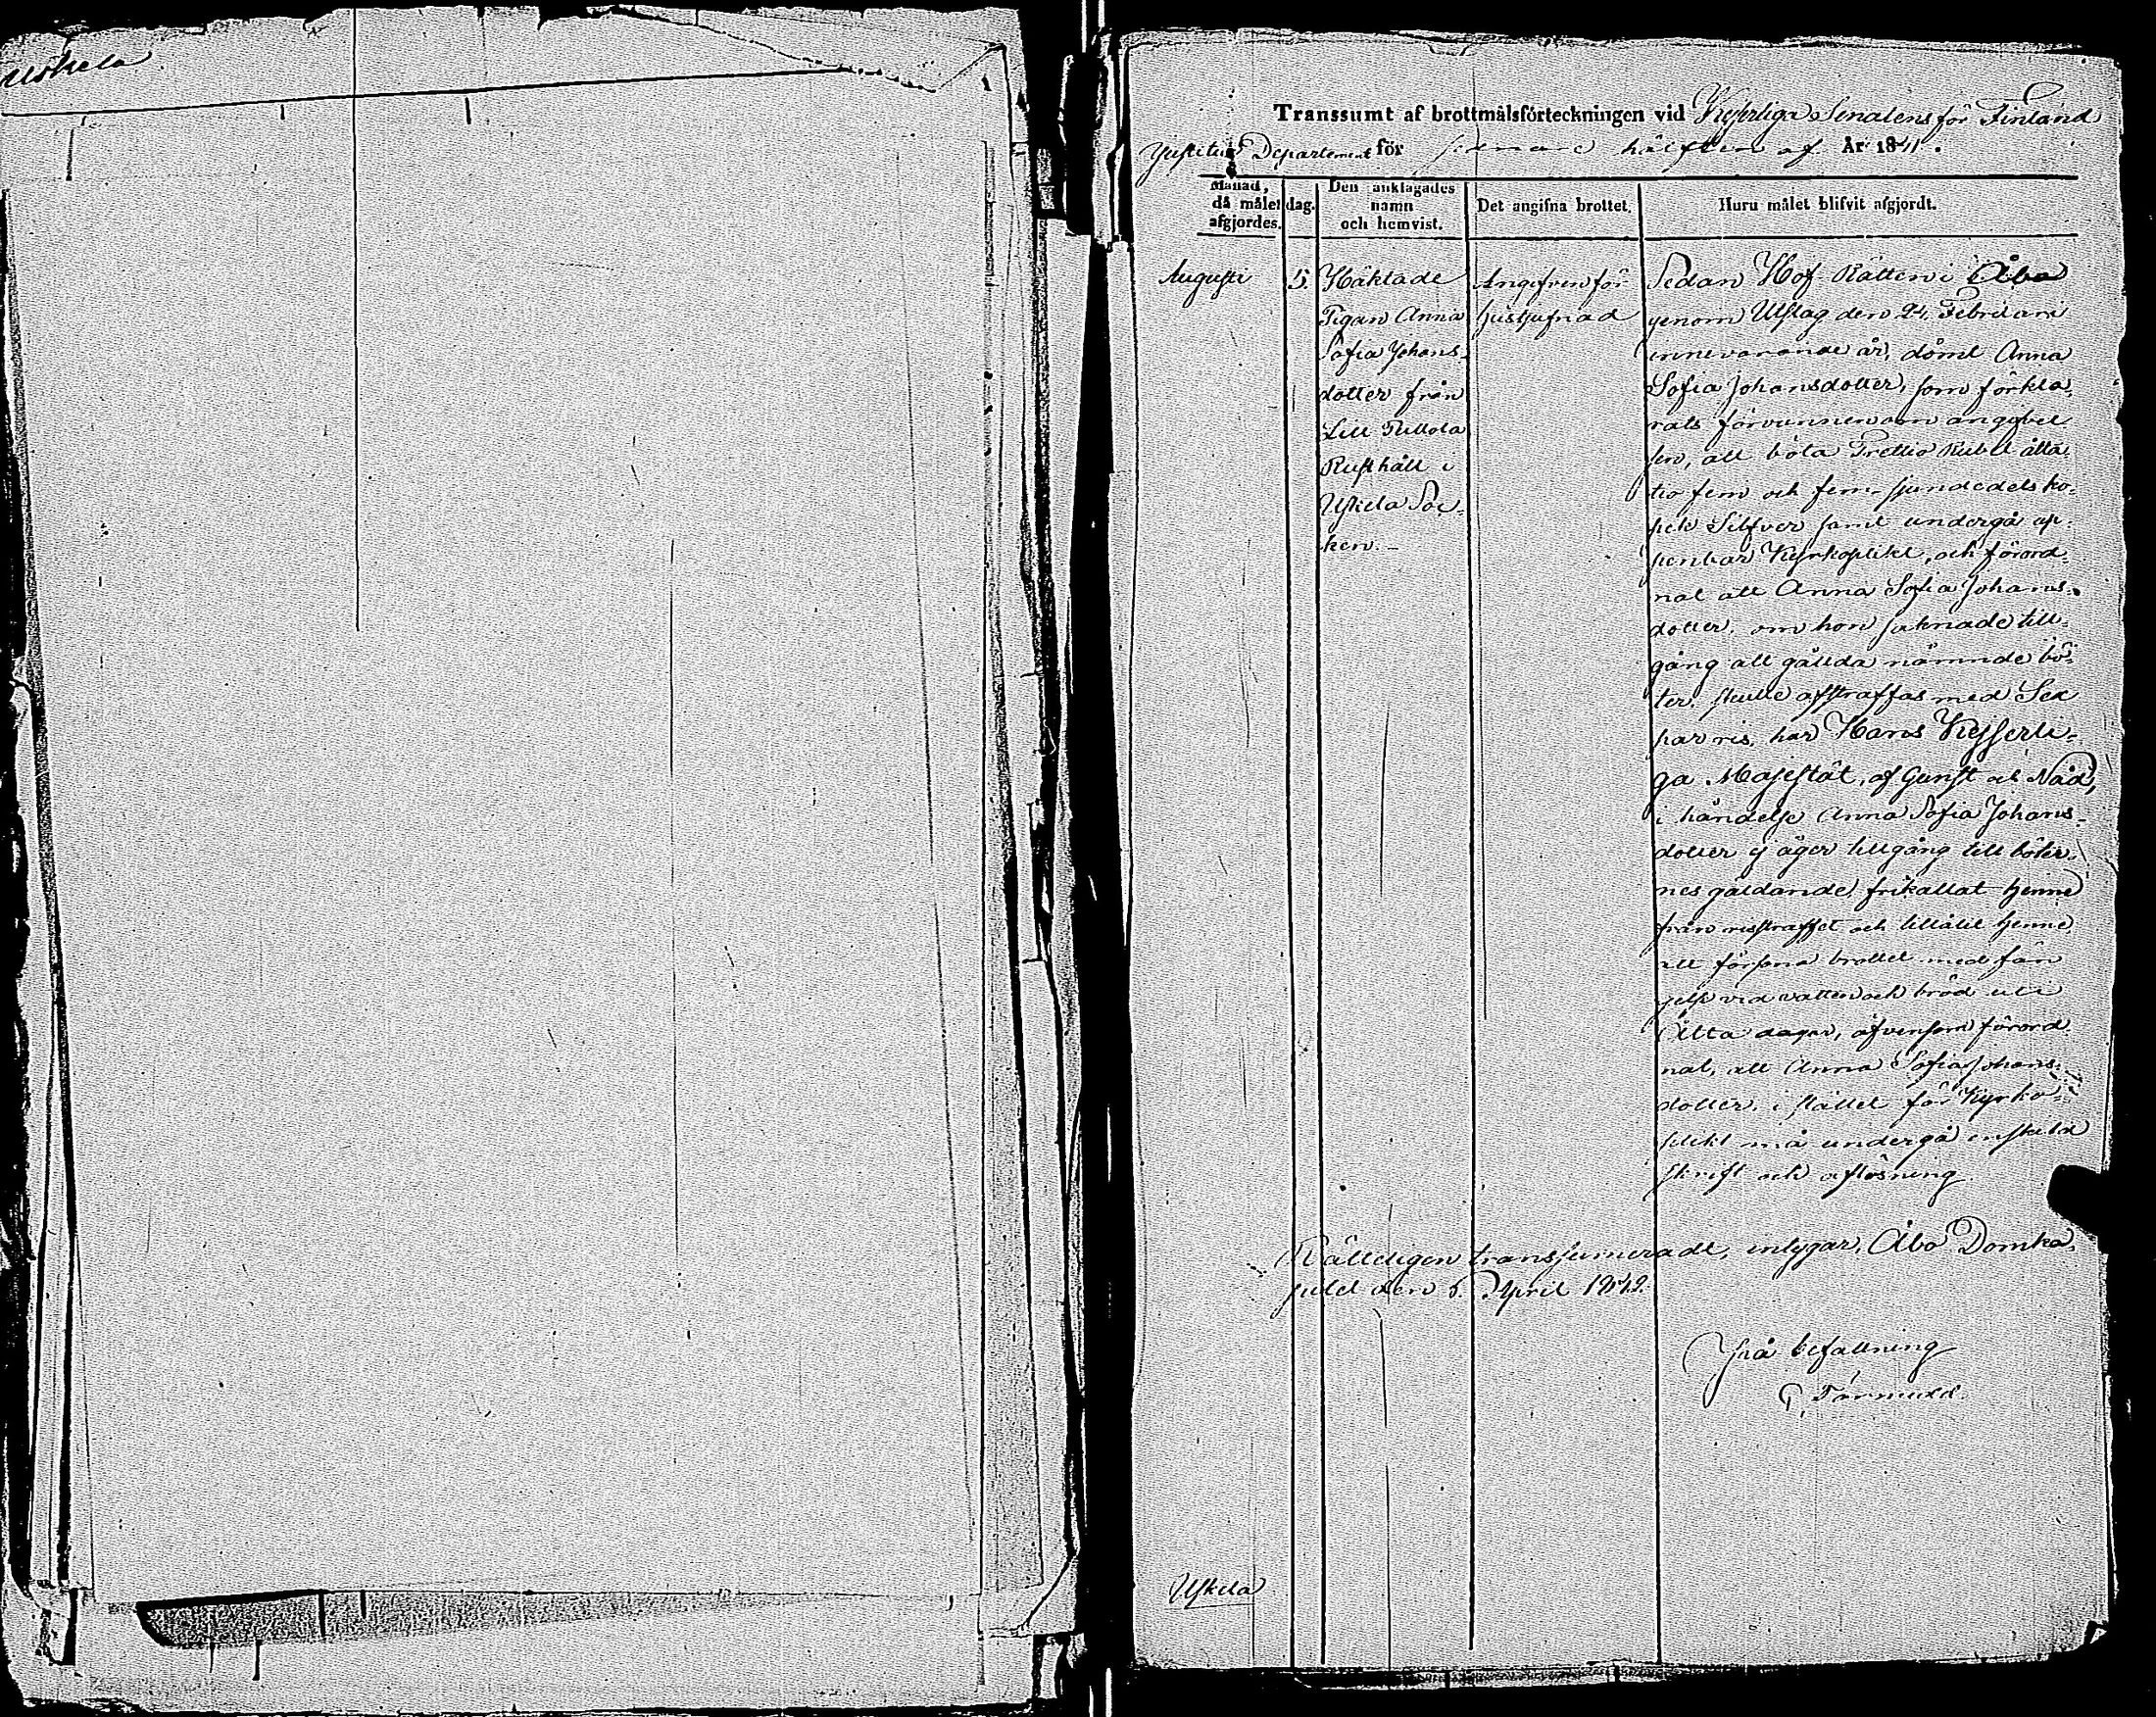 Uskela
Transsumt af brottmålsförteckningen vid Kejserliga Senatens för Finland
Justitiæ Departement för sednare hälften af År 1841.
Månad, då målet afgjordes.
dag.
Den anklagades namn och hemvist.
Det angifna brottet.
Huru målet blifvit afgjordt.
Augusti
5.
Häktade
Pigan Anna
Sofia Johans-
dotter från
Lill
Rusthåll i
Uskela Soc-
ken.-
Angifven för
tjufnad
Sedan Hof Rätten i Åbo
genom Utslag den 24 Februari
innevarande år, dömt Anna
Sofia Johansdotter, som förkla-
rats förvunnen om angifvel-
sen, att böta Trettio Rubel åtta-
tio fem och fem sjundedels ko-
pek Silfver samt undergå up-
penbar Kyrkoplikt, och förord-
nat att Anna Sofia Johans-
dotter, om hon saknade till-
gång att gällda nämnde bö-
ter, skulle afstraffas med Sex
par ris, har Hans Kejserli-
ga Majestät, af Gunst och Nåd,
i händelse Anna Sofia Johans-
dotter ej äger tillgång till böter-
nes gäldande, frikallat henne
från risstraffet och tillåtit henne
att försona brottet med fän-
gelse vid vatten och bröd uti
Åtta dagar, äfvensom förord-
nat, att Anna Sofia Johans-
dotter, i stället för Kyrko-
plikt må undergå enskild
skrift och aflösning.
Rätteligen transsumeradt, intygar, Åbo Domka-
pitel den 6. April 1842.
På befallning
Uskela